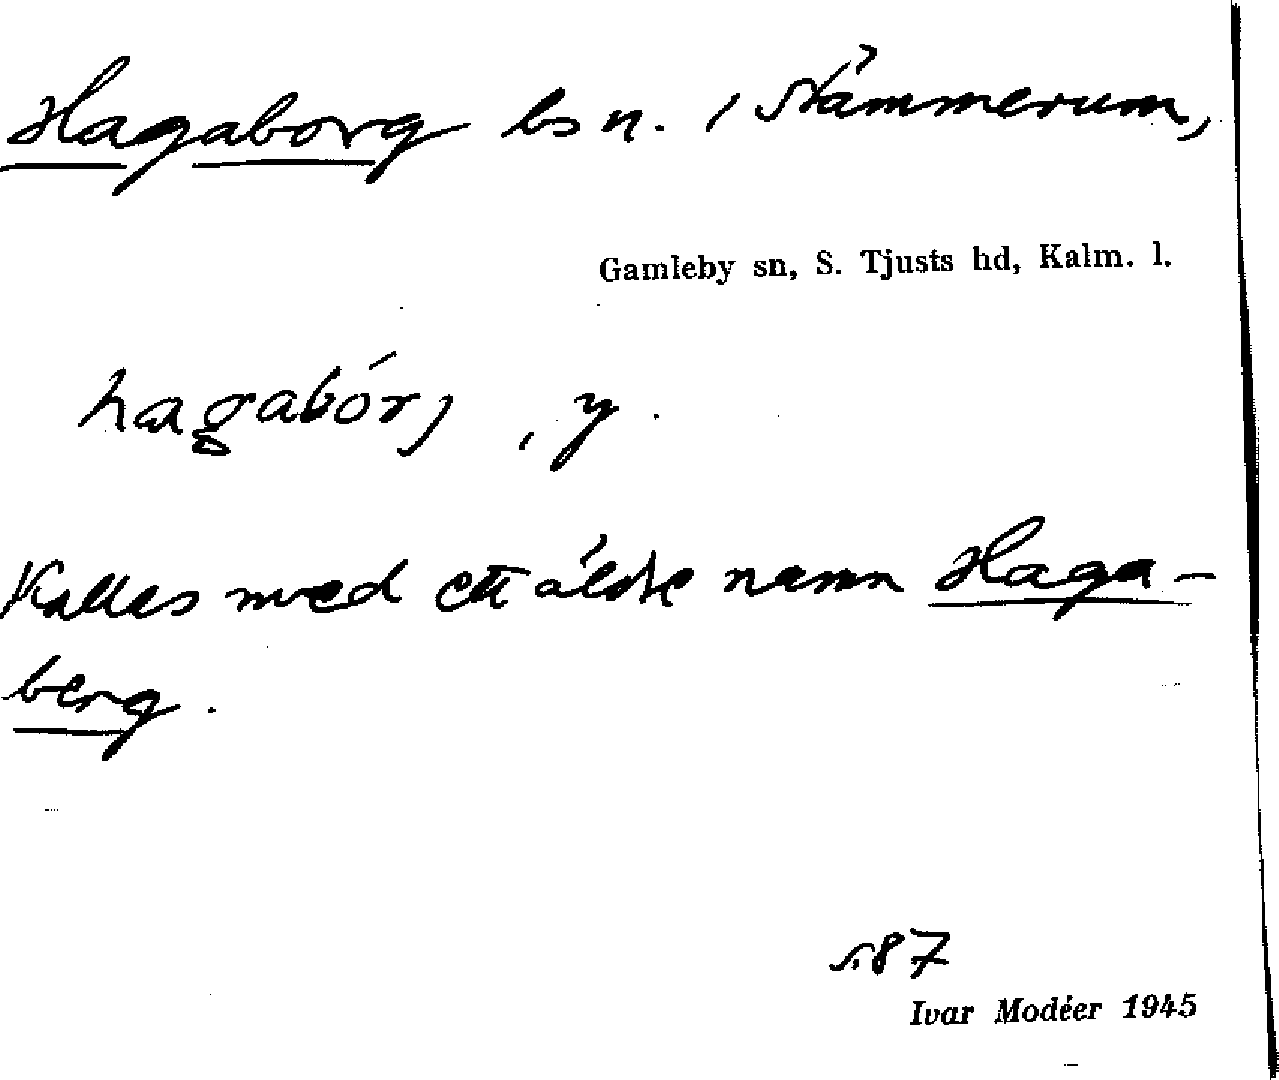 Hagaborg lsn. i Stämmerum,
Gamleby sn, S. Tjusts hd, Kalm. l.
hagabórj, y.
Kallas med ett äldre namn Haga-
berg.
s. 87
Ivar Modéer 1945